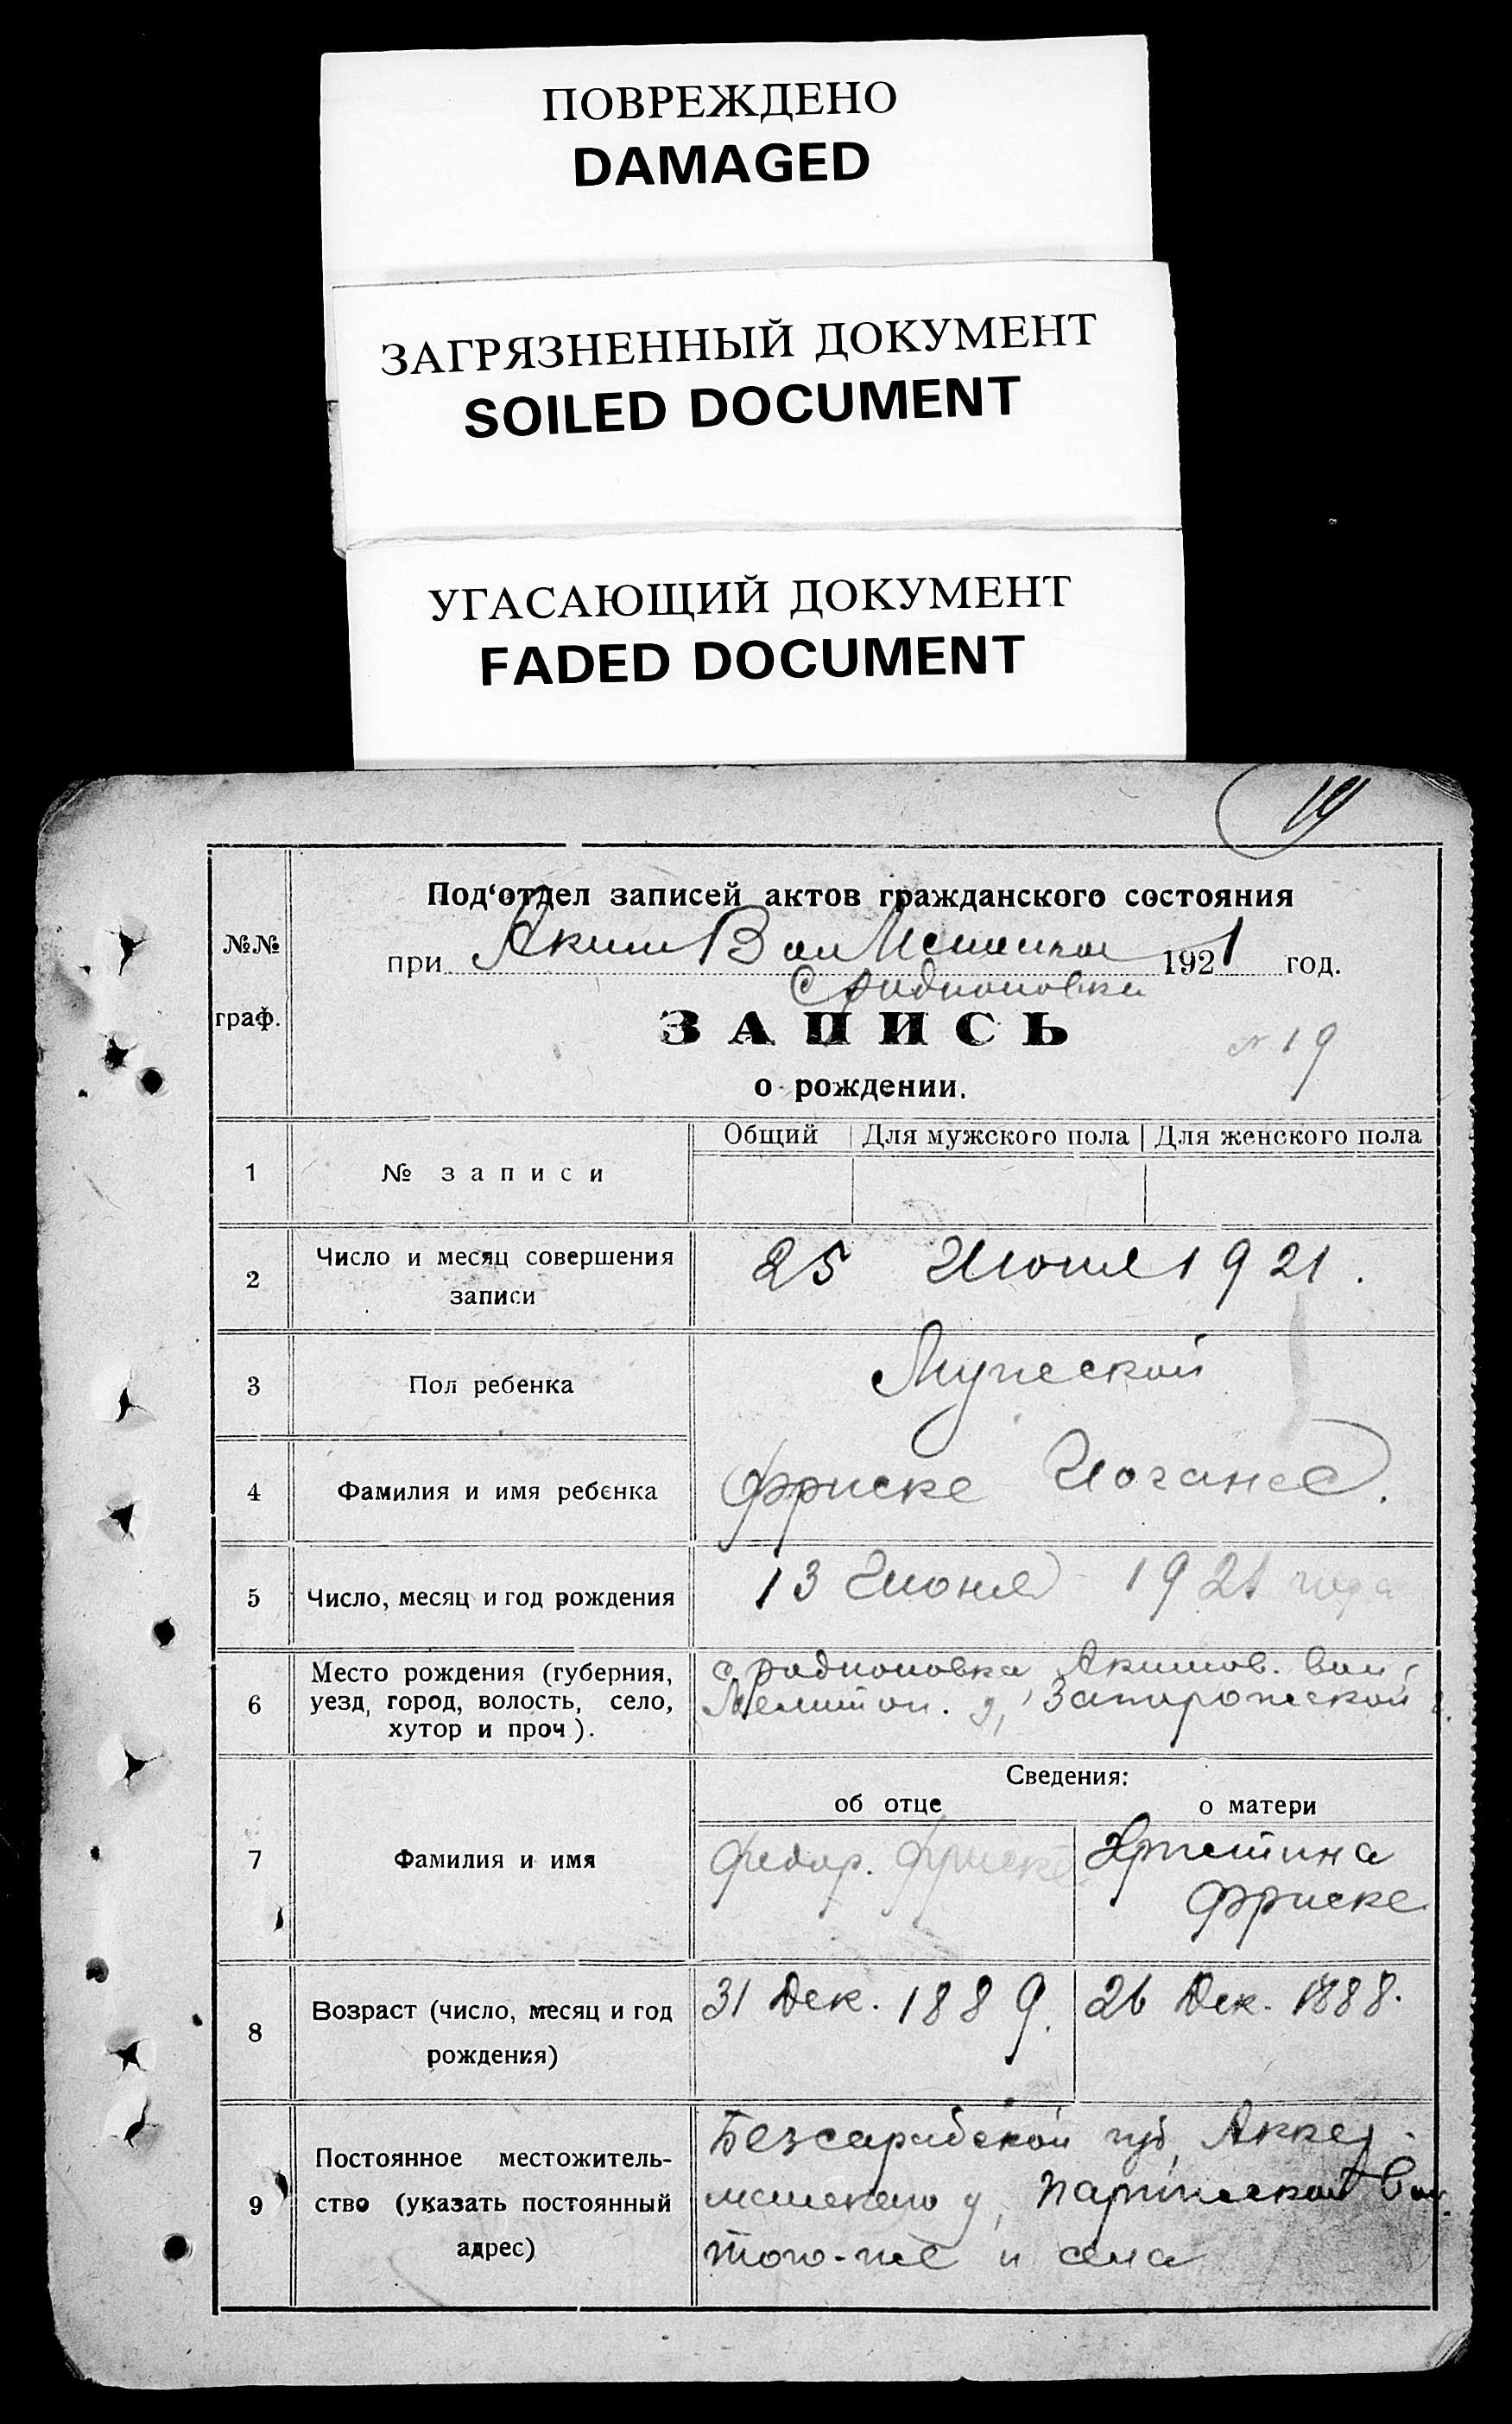 ПОВРЕЖДЕНО
DAMAGED
ЗАГРЯЗНЕННЫЙ ДОКУМЕНТ
SOILED DOCUMENT
УГАСАЮЩИЙ ДОКУМЕНТ
FADED DOCUMENT
19
№№ граф.
Под‘отдел записей актов гражданского состояния
при Аким Вол 1921 год.
С Родионовки
ЗАПИСЬ
№ 19
о рождении.
Общий Для мужского пола Для женского пола
1 № записи
2 Число и месяц совершения записи
25 Июня 1921.
3 Пол ребенка
Мужеской
4 Фамилия и имя ребенка
Фриске Иоганес.
5 Число, месяц и год рождения
13 Июня 1921 года
6 Место рождения (губерния,
уезд, город, волость, село,
хутор и проч).
с Родионовка Акимов. вол,
Мелитоп. у, Запорожской г.
Сведения:
об отце о матери
7 Фамилия и имя
Федор. Фриске
Христина
Фриске
8 Возраст (число, месяц и год
рождения)
31 Дек. 1889.
26 Дек. 1888.
9 Постоянное местожитель-
ство (указать постоянный
адрес)
Безсарабской губ, Аккер-
манского у, Парижской Вол.
того-же и села